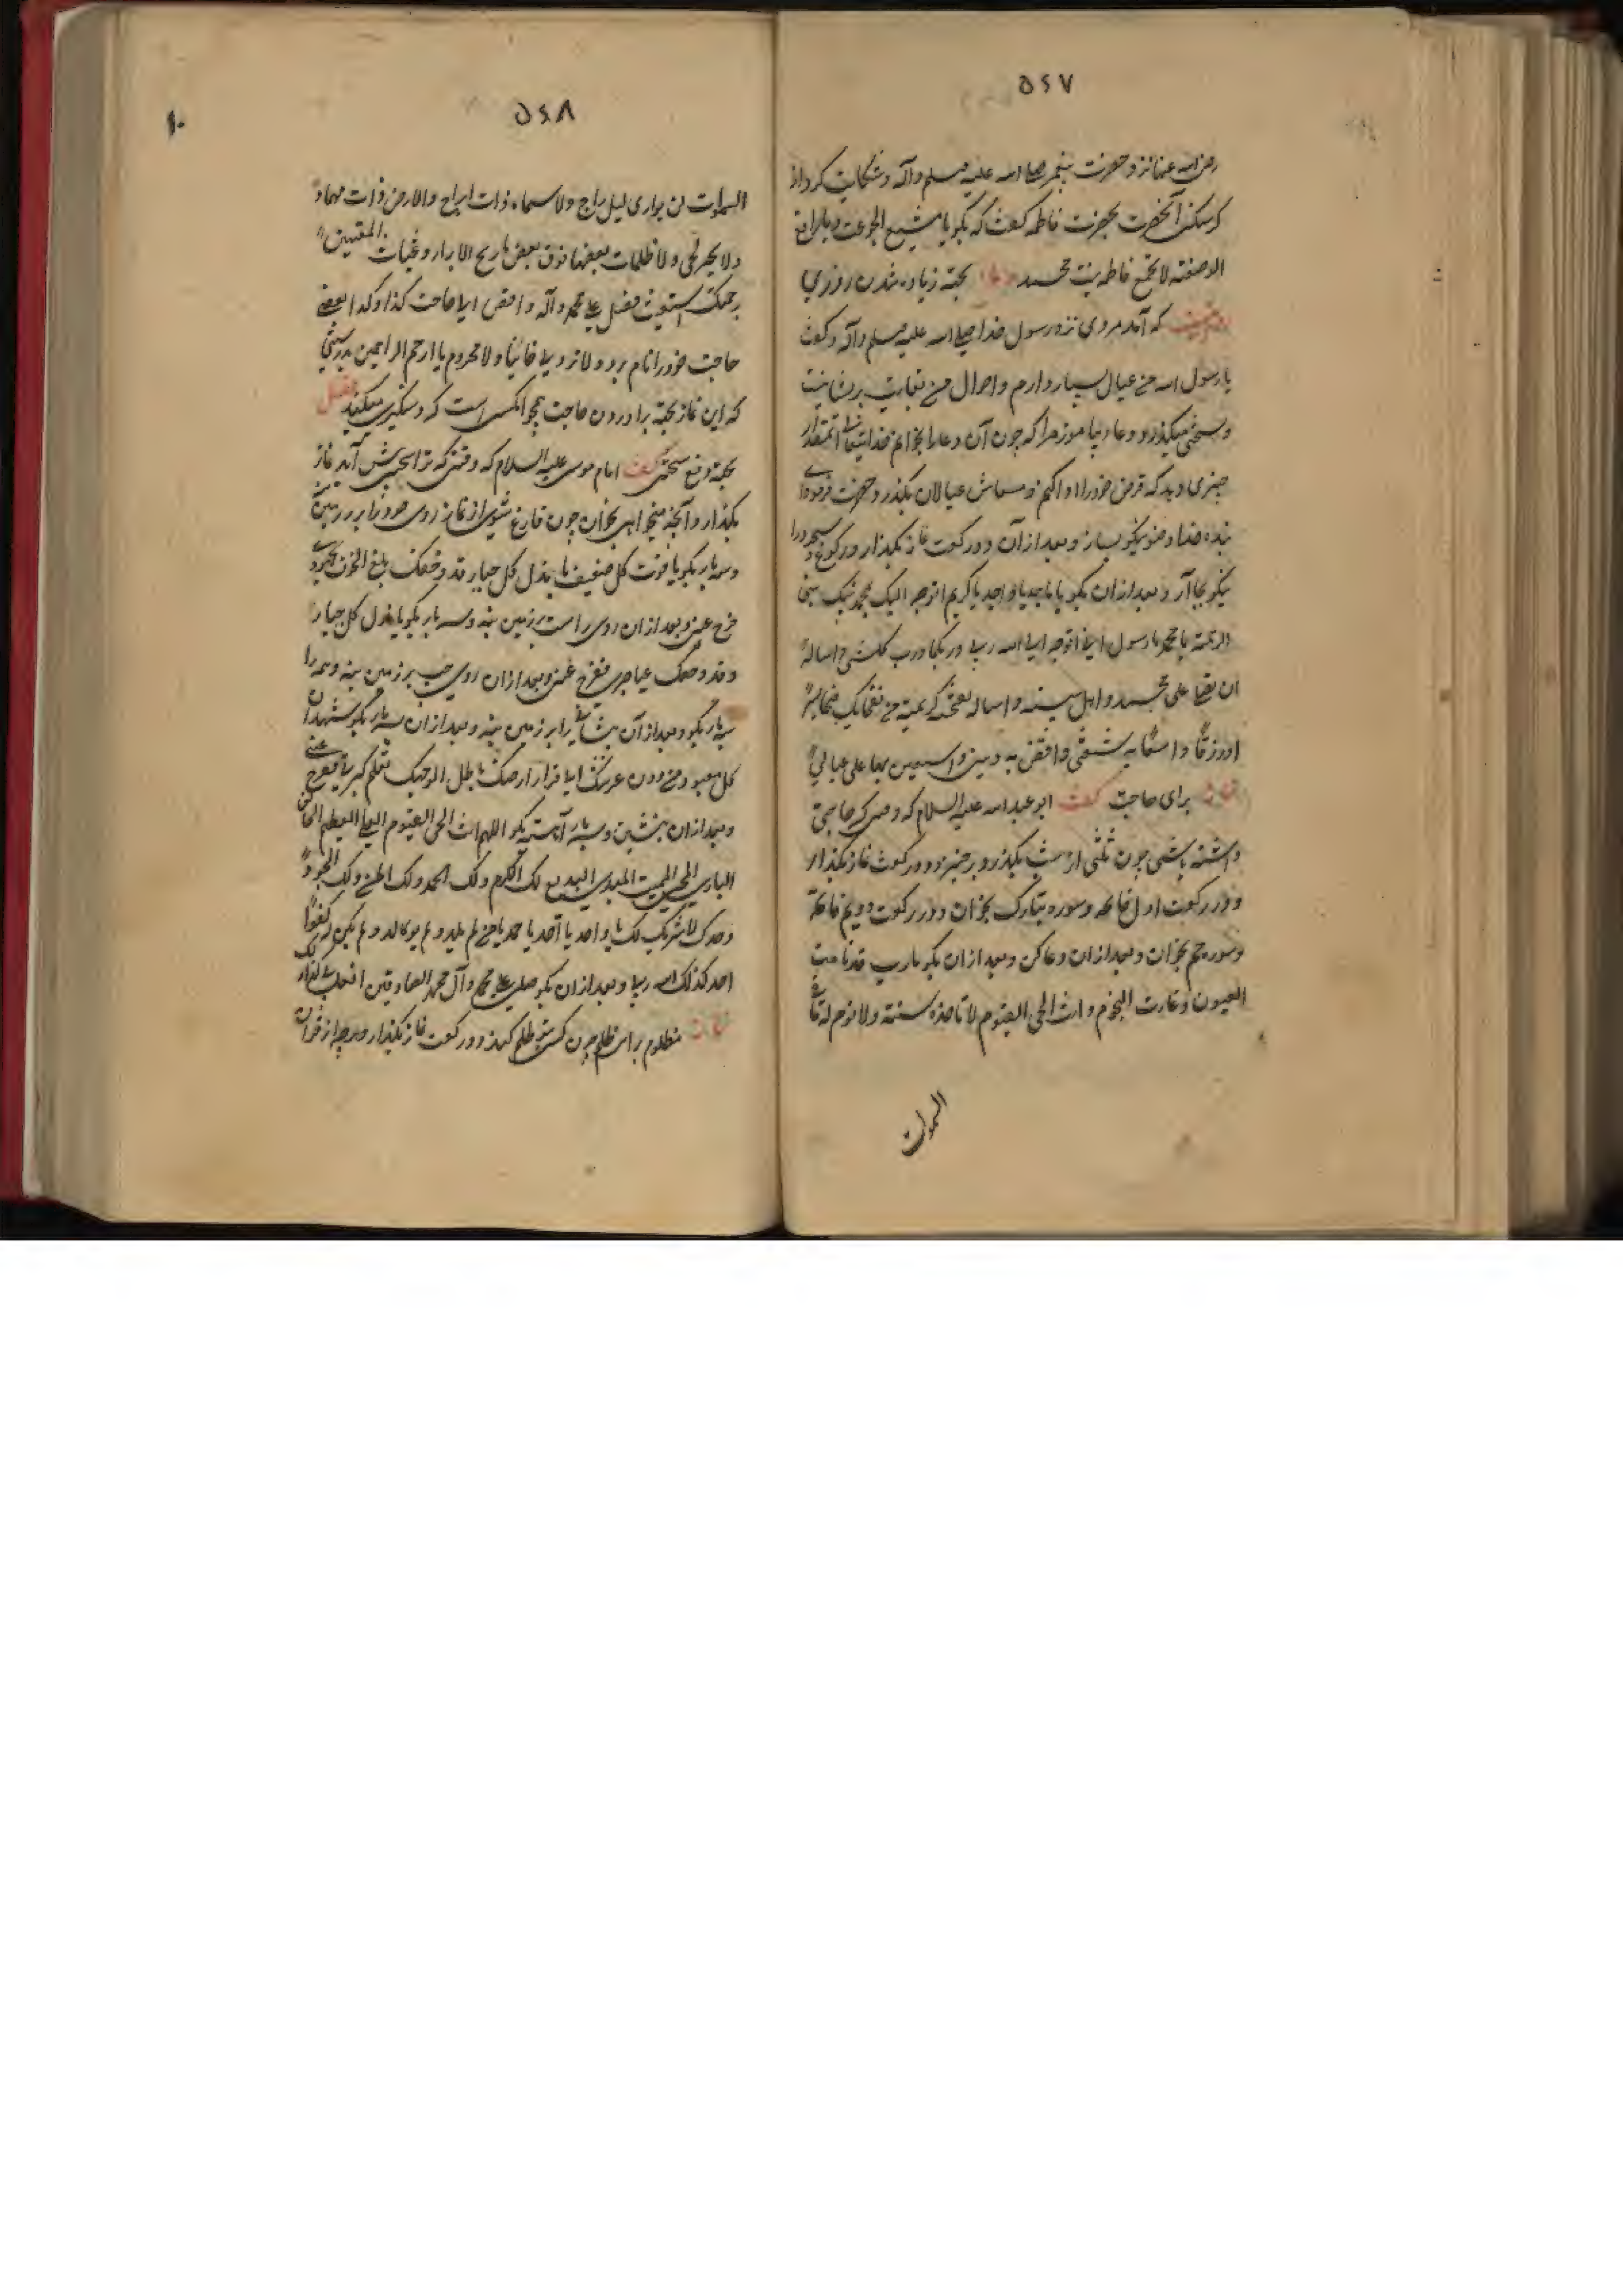 ۵۴۷
رضی الله عنها نزد حضرت پیغمبر صلی الله علیه وسلم وآله وشکایت کرد از
گرسنگی آنحضرت بحضرت فاطمه گفت که بگو یا مشبع الجوعة و یا رافع
الوضعة لا تجع فاطمه بنت محمد دعا بجهة زیاده شدن روزی
که آمد مردی نزد رسول خدا صلی الله علیه وسلم وآله وگفت
یا رسول الله من عیال بسیار دارم واحوال من بغایت پریشانیت
وبسختی میگذرد دعا بیاموز مرا که چون آن دعا را بخوانم خدایتعالی آنمقدار
چیزی دهد که قرض خود را ادا کنم و معاش عیالان بگذرد حضرت فرمود ای
بنده خدا وضو نیکو بساز وبعد از آن دو رکعت نماز بگذار ورکوع وسجود را
نیکو بجا آر وبعد از ان بگو یا ماجد یا واجد یا کریم اتوجه الیک بمحمد نبیک نبی
الرحمة یا محمد یا رسول الله انی اتوجه الی الله ربی وربک ورب کل شیء اساله
ان یصلی علی محمد واهل بیته واساله نفحة کریمة من نفحاتک فتحا یسیرا
ورزقا واسعا به شعثی واقضی به دینی واستعین بها علی عیالی
نماز برای حاجت گفت ابو عبدالله علیه السلام که وقتی که حاجتی
داشته باشی چون ثلثی از شب بگذرد برخیز ودو رکعت نماز بگذار
ودر رکعت اول فاتحه وسوره تبارک بخوان ودر رکعت دویم فاتحه
وسوره حم بخوان وبعد از ان دعا کن وبعد از ان بگو یا رب قد نامت
العیون وغارت النجوم وانت الحی القیوم لا تاخذه سنة ولا نوم له ما فی
السموات
۵۴۸
۱۰
السموات لن یواری لیل داج ولا سماء ذات ابراج والارض ذات مهاد
ولا بحر لجی ولا ظلمات بعضها فوق بعض یا ریح الابرار وغیاث المستغیثین
برحمتک استغیث فصل علی محمد وآله واقض لی حاجت کذا وکذا بعضی
حاجت خود را نام برد ولا تردنی خائبا ولا محروم یا ارحم الراحمین بدرستی
که این نماز بجهة برآوردن حاجت همچو انکسی است که دستگیری میکند فصل
بجهة دفع سختی گفت امام موسی علیه السلام که وقتی که ترا سختی پیش آید نماز
بگذار وآنچه میخواهی بخوان چون فارغ شوی از نماز روی خود را بر زمین
وسه بار بگو یا قوت کل ضعیف یا مذل کل جبار قد وحقک بلغ الخوف مجهودی
فرج عنی وبعد از ان روی راست بزمین بنه وسه بار بگو یا مذل کل جبار
وقد وحقک عیا صبری ففرج عنی وبعد از ان روی چپ بر زمین بنه وهم را
سه بار بگو وبعد از آن پیشانی را بر زمین بنه وبعد از ان سه بار بگو اشهد ان
کل معبود من دون عرشک الی قرار ارضک باطل الا وجهک تعلم کربتی ففرج عنی
وبعد از ان بنشین وسه بار آهسته بگو اللهم انت الحی القیوم العلی العظیم الخالق
الباری المحیی الممیت المبدی البدیع لک الکرم ولک الحمد ولک المن ولک الجود
وحدک لا شریک لک یا واحد یا احد یا صمد یا من لم یلد ولم یولد ولم یکن له کفوا
احد کذلک الله ربی وبعد از ان بگو صلی علی محمد وآل محمد الصادقین افعل بی کذا
نماز مظلوم برای ظلم چون کسی بتو ظلم کند دو رکعت نماز بگذار وهرچه از قرآن